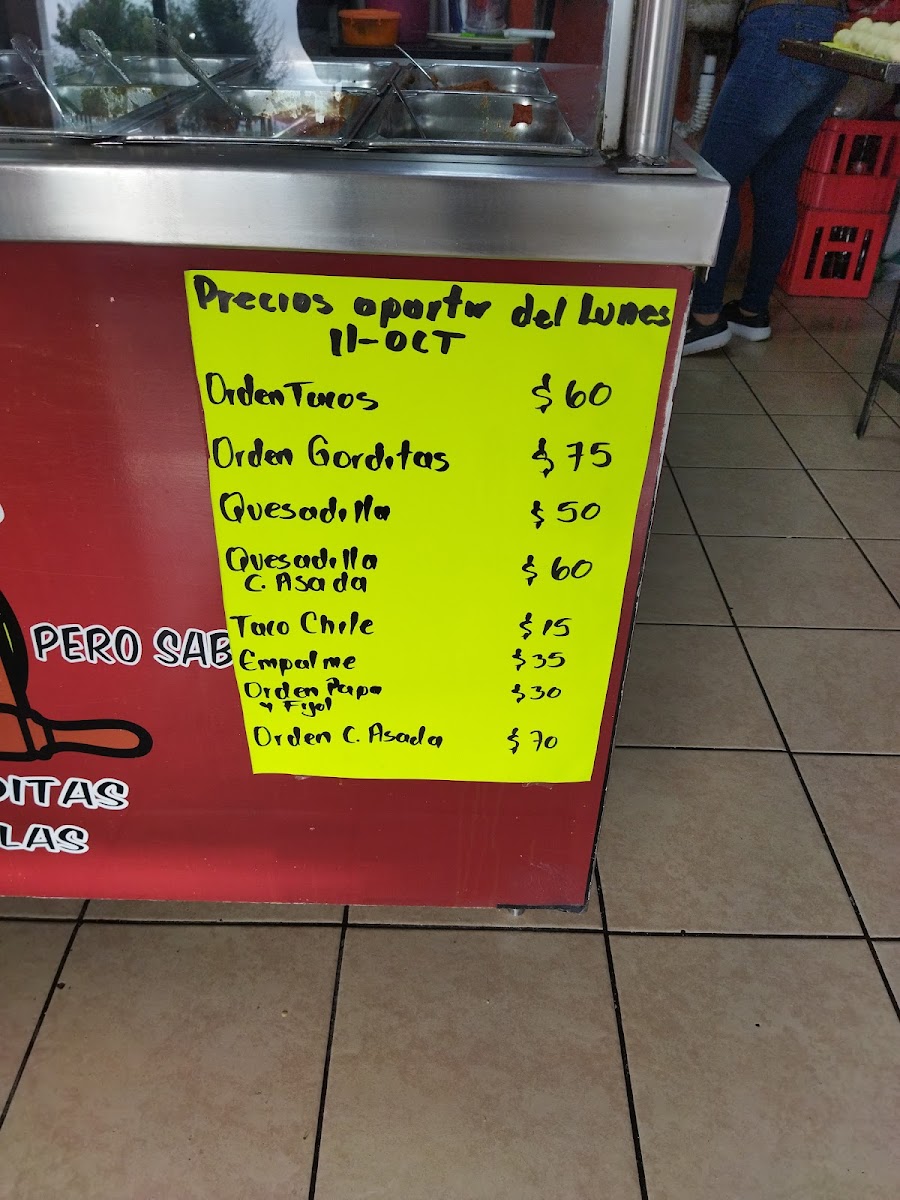 Precios apartir del Lunes
11-OCT
Orden Tacos $60
Orden Gorditas $75
Quesadilla $50
Quesadilla
C. Asada $60
Taco Chile $15
Empalme $35
Orden Papa
y Fijol $30
Orden C. Asada $70
PERO SAB
DITAS
LAS